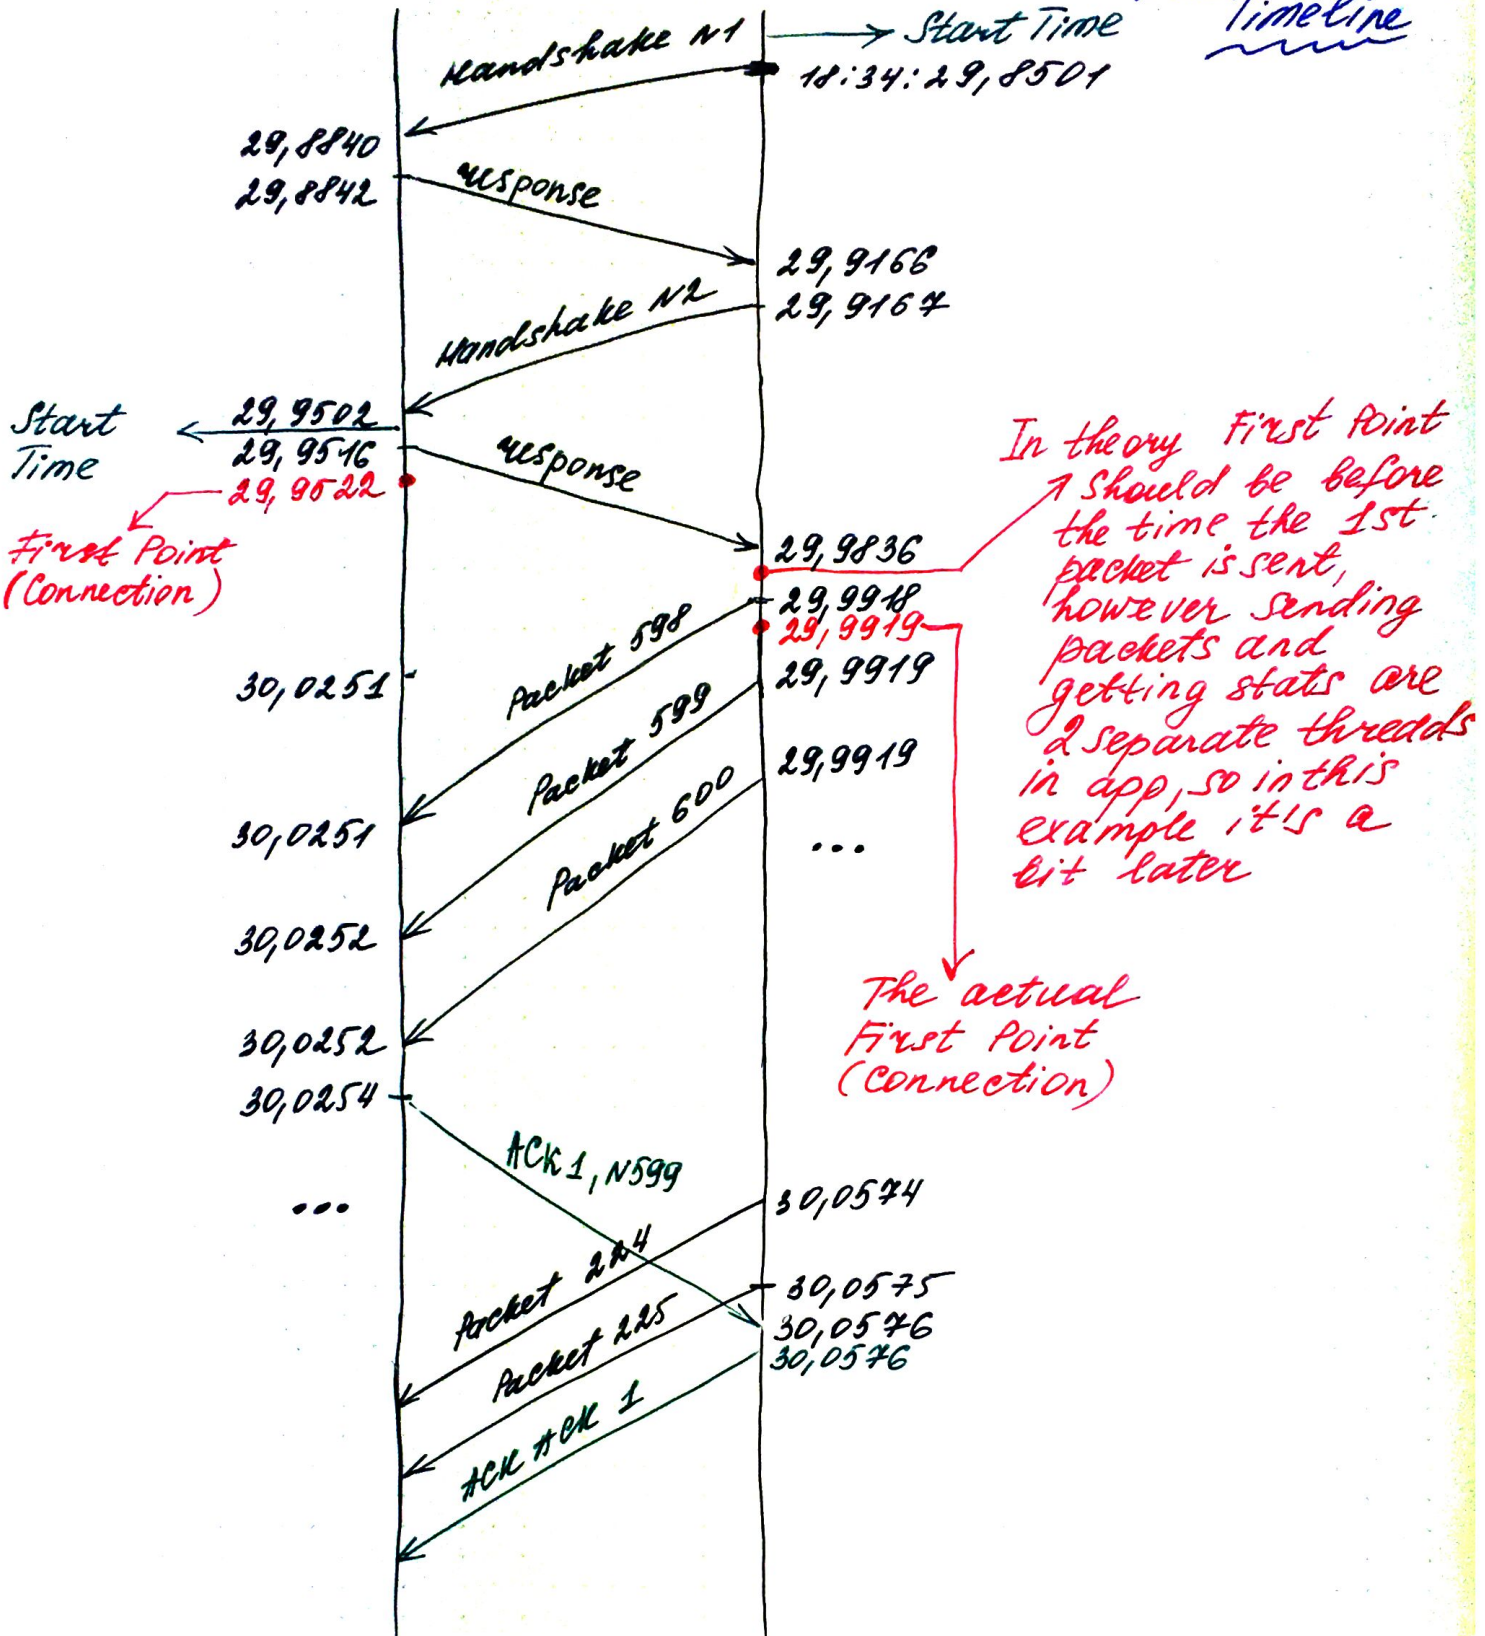 Timeline
Handshake N1
Start Time
18:34:29,8501
29,8840
29,8842
response
29,9166
29,9167
Handshake N2
Start
Time
29,9502
29,9516
29,9522
response
First Point
(Connection)
29,9836
29,9918
29,9919
29,9919
29,9919
In theory First Point
should be before
the time the 1st
packet is sent,
however sending
packets and
getting stats are
2 separate threads
in app, so in this
example it's a
bit later
Packet 598
30,0251
Packet 599
30,0251
Packet 600
...
30,0252
The actual
First Point
(Connection)
30,0252
30,0254
ACK 1, N599
...
30,0574
Packet 224
30,0575
30,0576
30,0576
Packet 225
ACK ACK 1